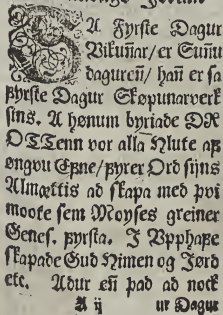 SA Fyrste Dagur
Vikuñar/ er Suñu
dagureñ/ hañ er sa
Fyrste Dagur Skøpunarverk
sins. A hønum byriade DR
OTTenn vor alla Hlute af
øngvu Efne/ fyrer Ord sijns
Almættis ad skapa med þvi
moote sem Moyses greiner
Genes. fyrsta. I Vpphafe
skapade Gud Himen og Jørd
etc. Adur eñ þad ad nock
A ij ur Dagur